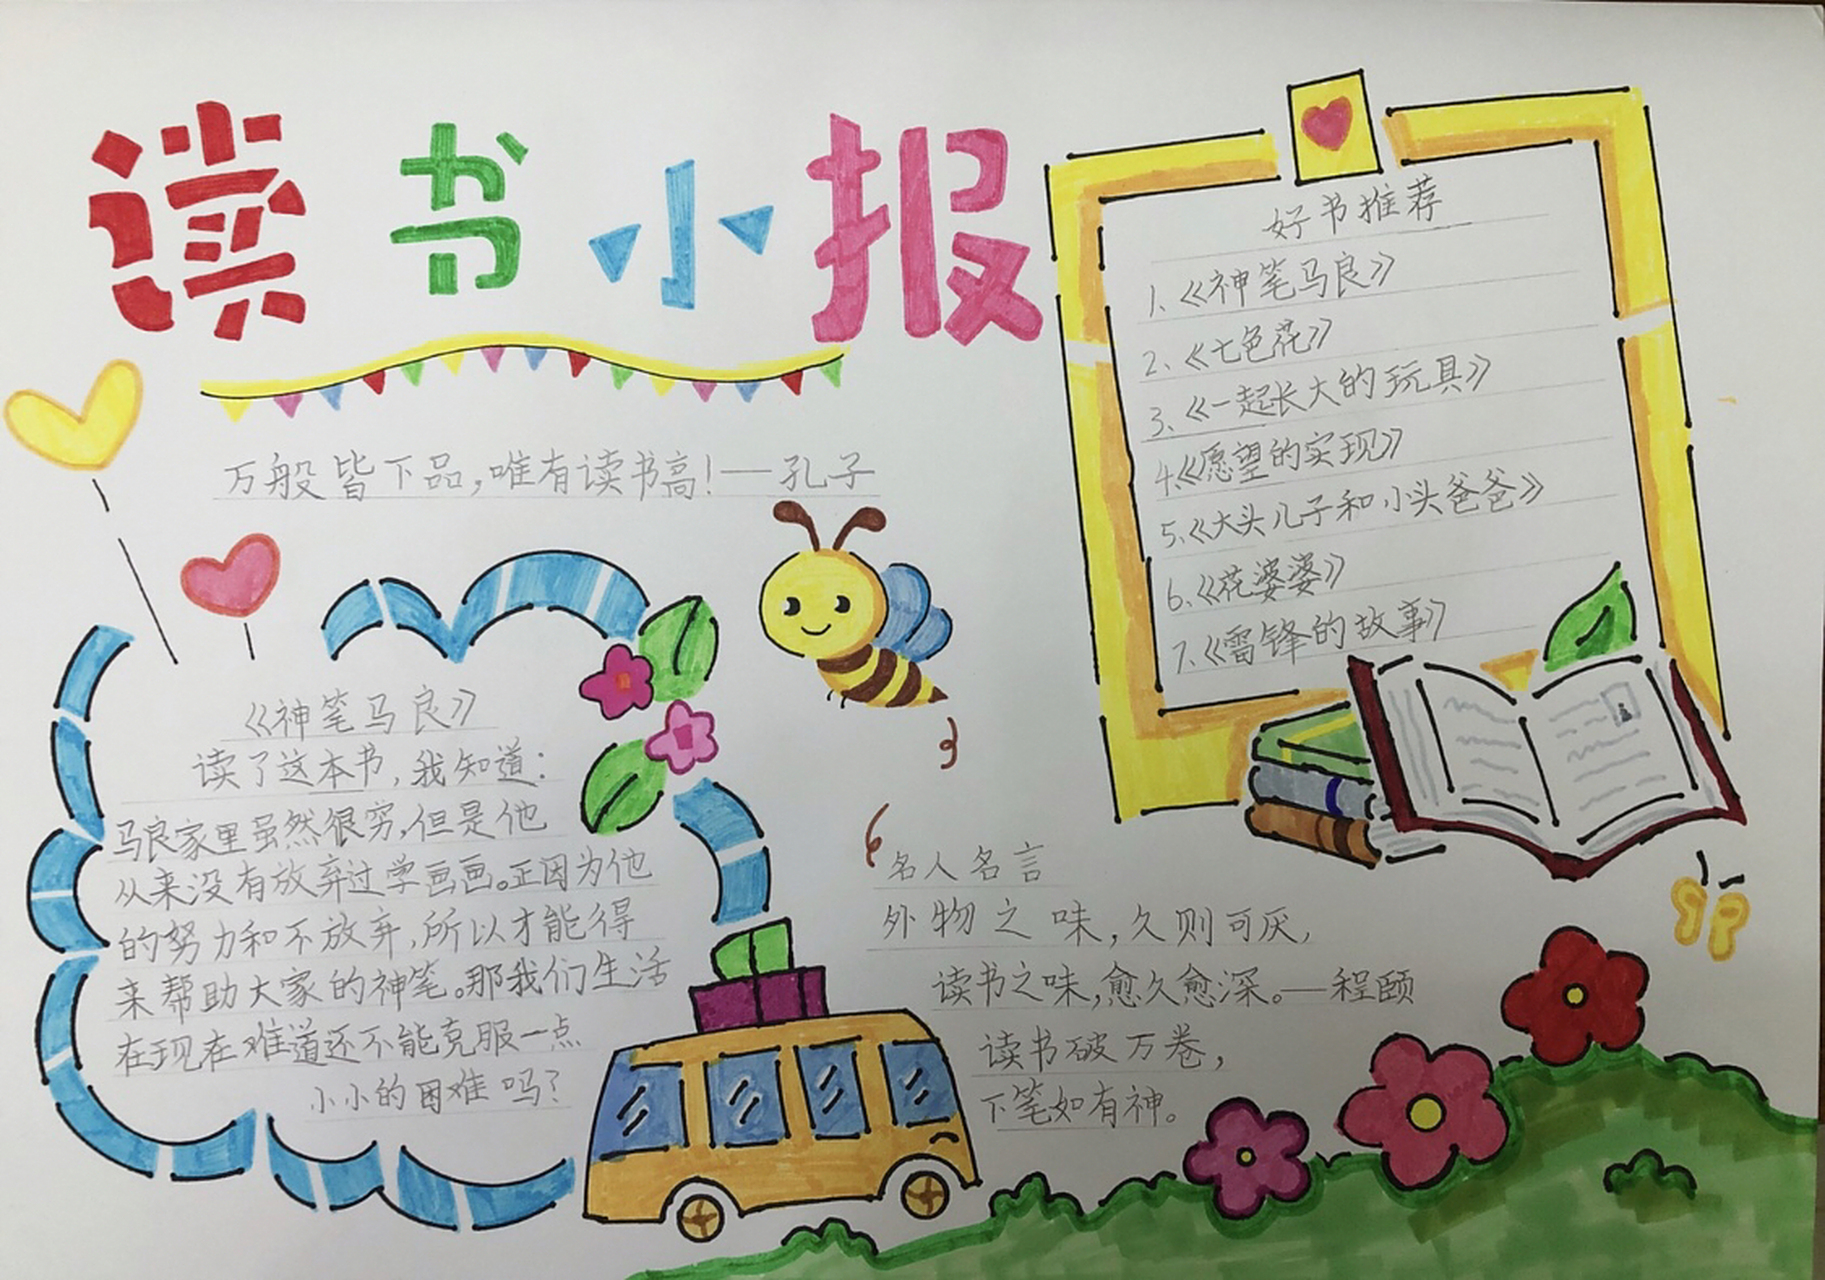 读书小报
万般皆下品,唯有读书高!——孔子
《神笔马良》
读了这本书,我知道:
马良家里虽然很穷,但是他
从来没有放弃过学画画。正因为他
的努力和不放弃,所以才能得
来帮助大家的神笔。那我们生活
在现在难道还不能克服一点
小小的困难吗?
好书推荐
1、《神笔马良》
2、《七色花》
3、《一起长大的玩具》
4、《愿望的实现》
5、《大头儿子和小头爸爸》
6、《花婆婆》
7、《雷锋的故事》
名人名言
外物之味,久则可厌,
读书之味,愈久愈深。——程颐
读书破万卷,
下笔如有神。